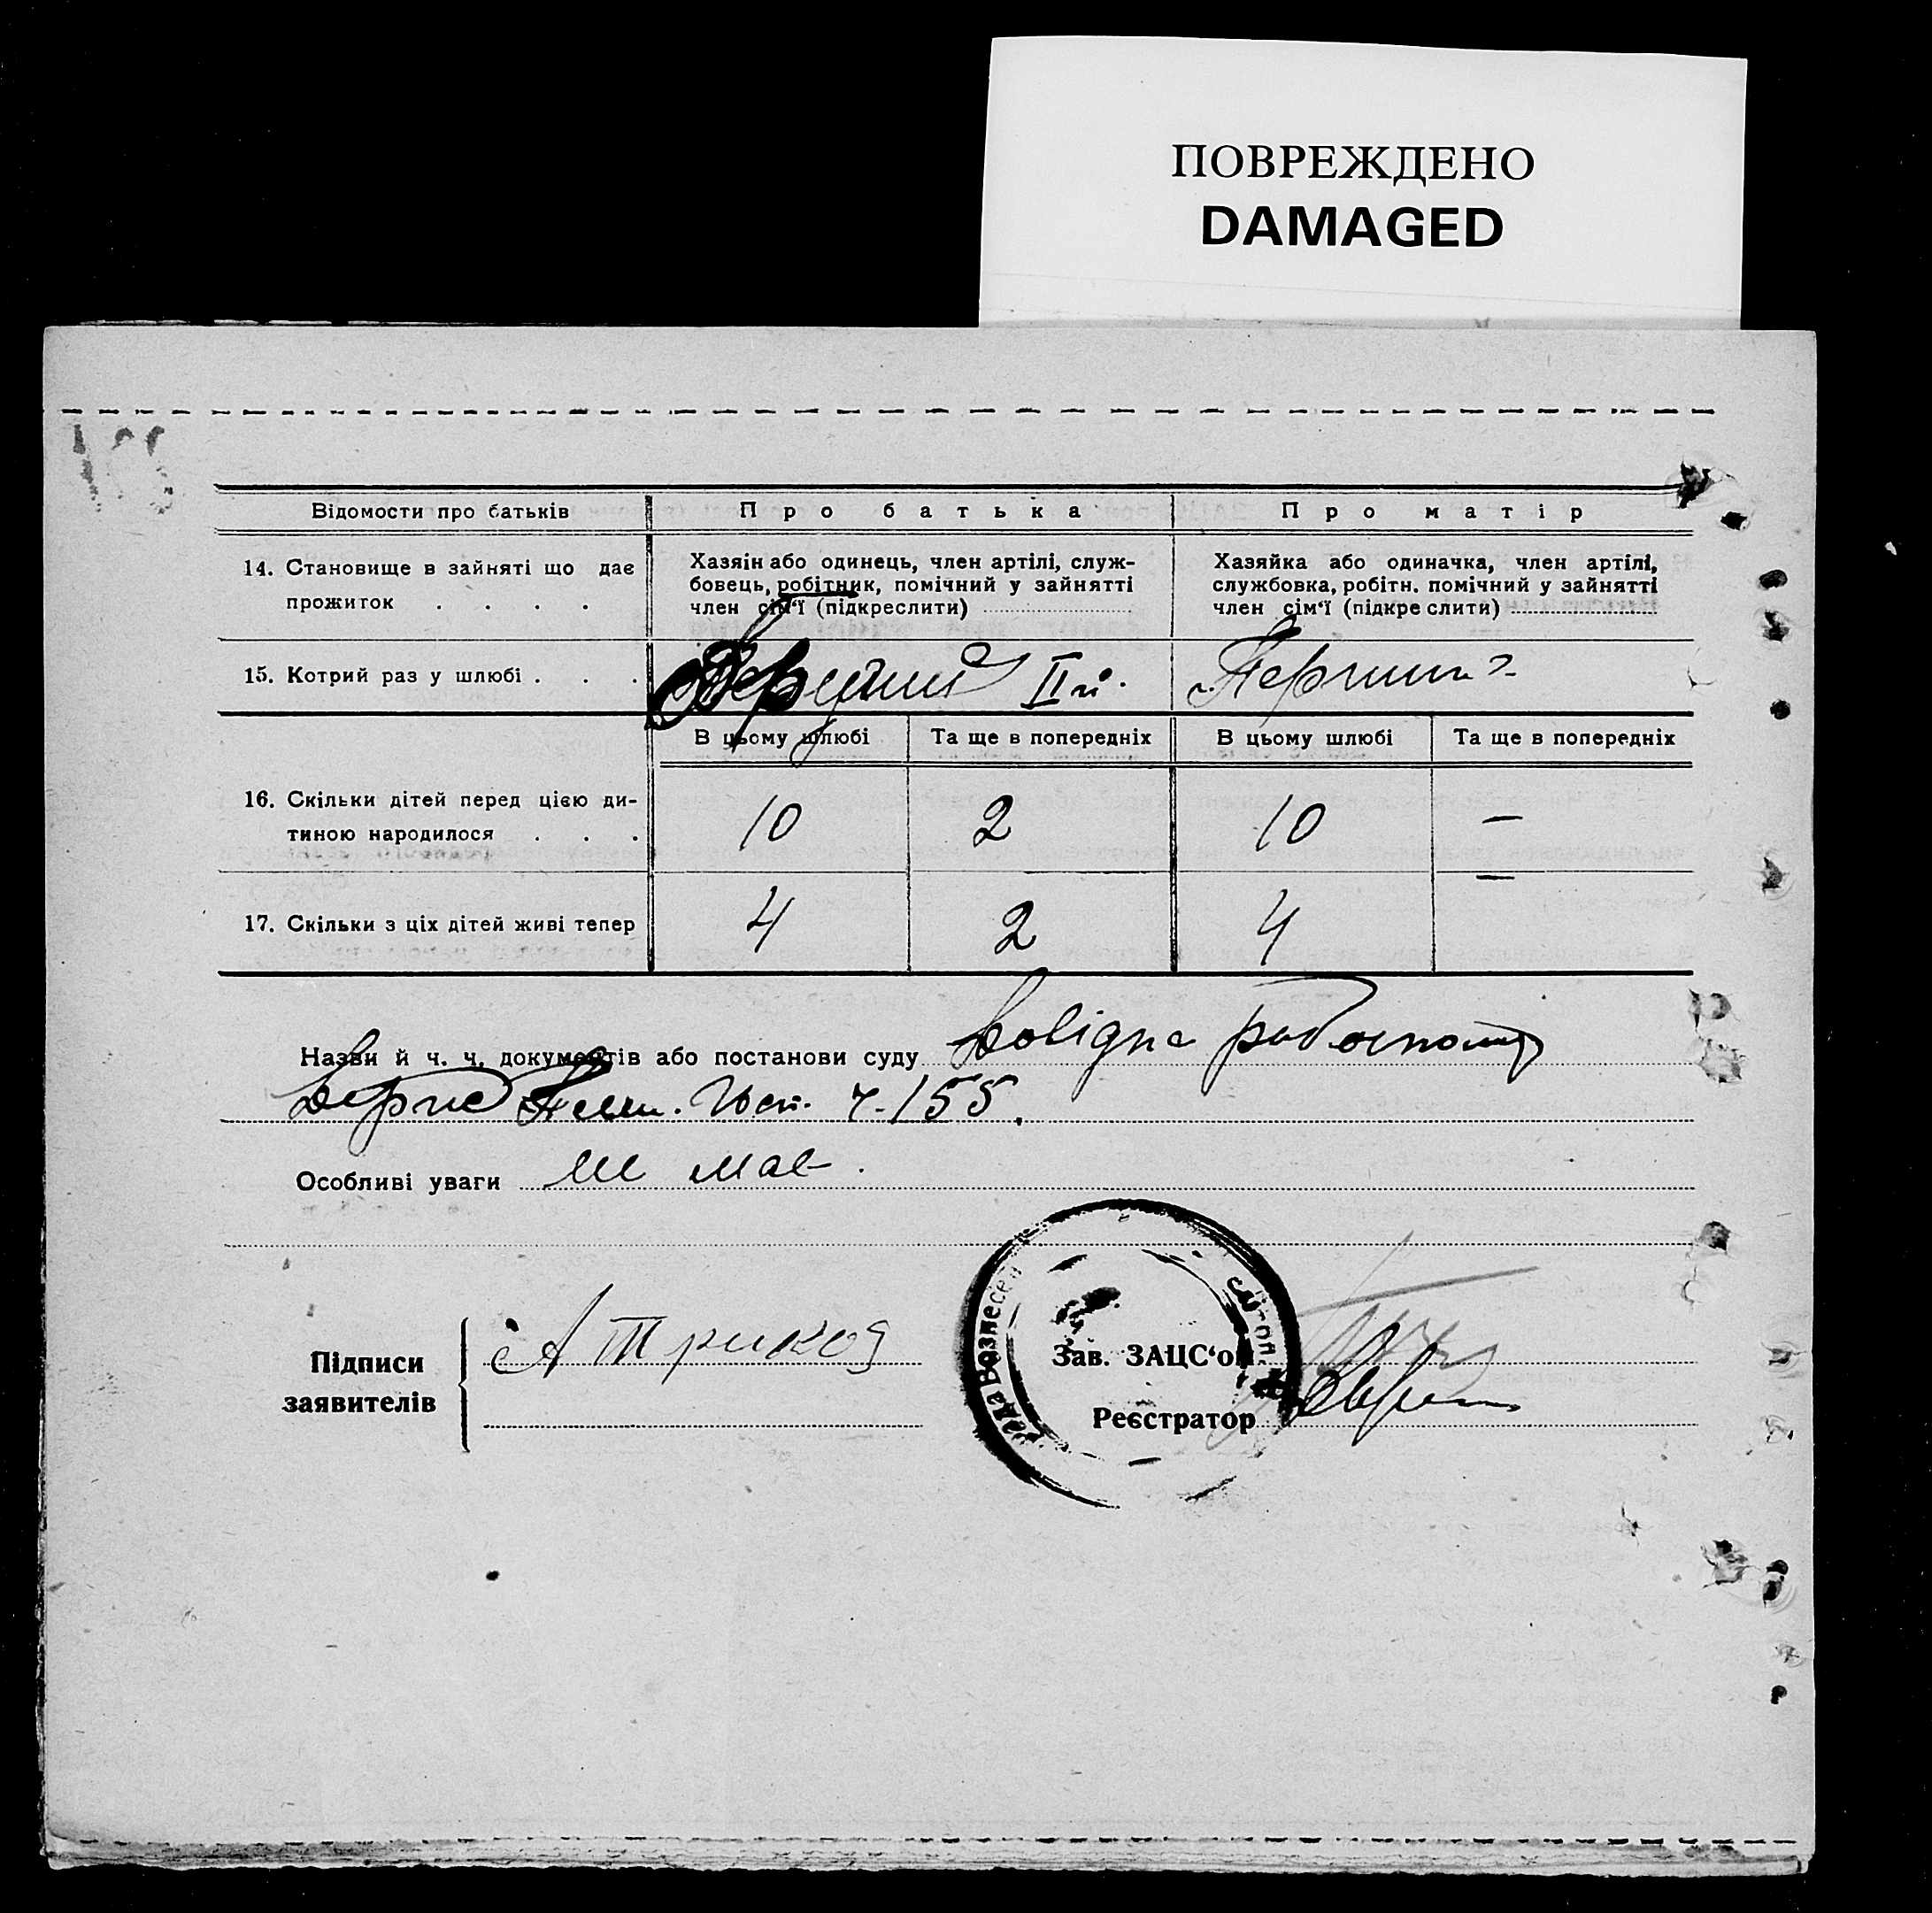 ПОВРЕЖДЕНО
DAMAGED
Відомости про батьків
Про батька
Про матір
14. Становище в зайняті що дає
прожиток . . . .
Хазяін або одинець, член артілі, служ-
бовець, робітник, помічний у зайнятті
член сім'ї (підкреслити)
Хазяйка або одиначка, член артілі,
службовка, робітн. помічний у зайнятті
член сім'ї (підкре слити)
15. Котрий раз у шлюбі . . .
IIй.
В цьому шлюбі
Та ще в попередніх
В цьому шлюбі
Та ще в попередніх
16. Скільки дітей перед цією ди-
тиною народилося . . .
10
2
10
—
17. Скільки з ціх дітей живі тепер
4
2
4
—
Назви й ч. ч. документів або постанови суду Довідка
ч. 155.
Особливі уваги не має.
Підписи
заявителів
А Трикоз
рада Вознесен
Зав. ЗАЦС'ом
Реєстратор